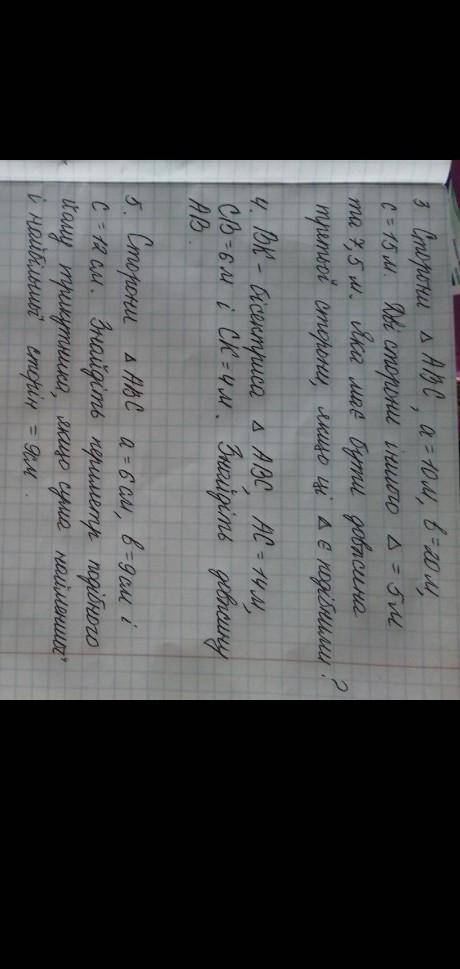 3 Сторони △ ABC, a = 10 м, b = 20 м,
c = 15 м. Дві сторони іншого △ = 5 м
та 7,5 м. Яка має бути довжина
третьої сторони, якщо ці △ є подібними?
4. BK - бісектриса △ ABC, AC = 14 м,
CB = 6 м і CK = 4 м. Знайдіть довжину
AB.
5. Сторони △ ABC a = 6 см, b = 9 см і
c = 12 см. Знайдіть периметр подібного
йому трикутника, якщо сума найменшої
і найбільшої сторін = 9 см.